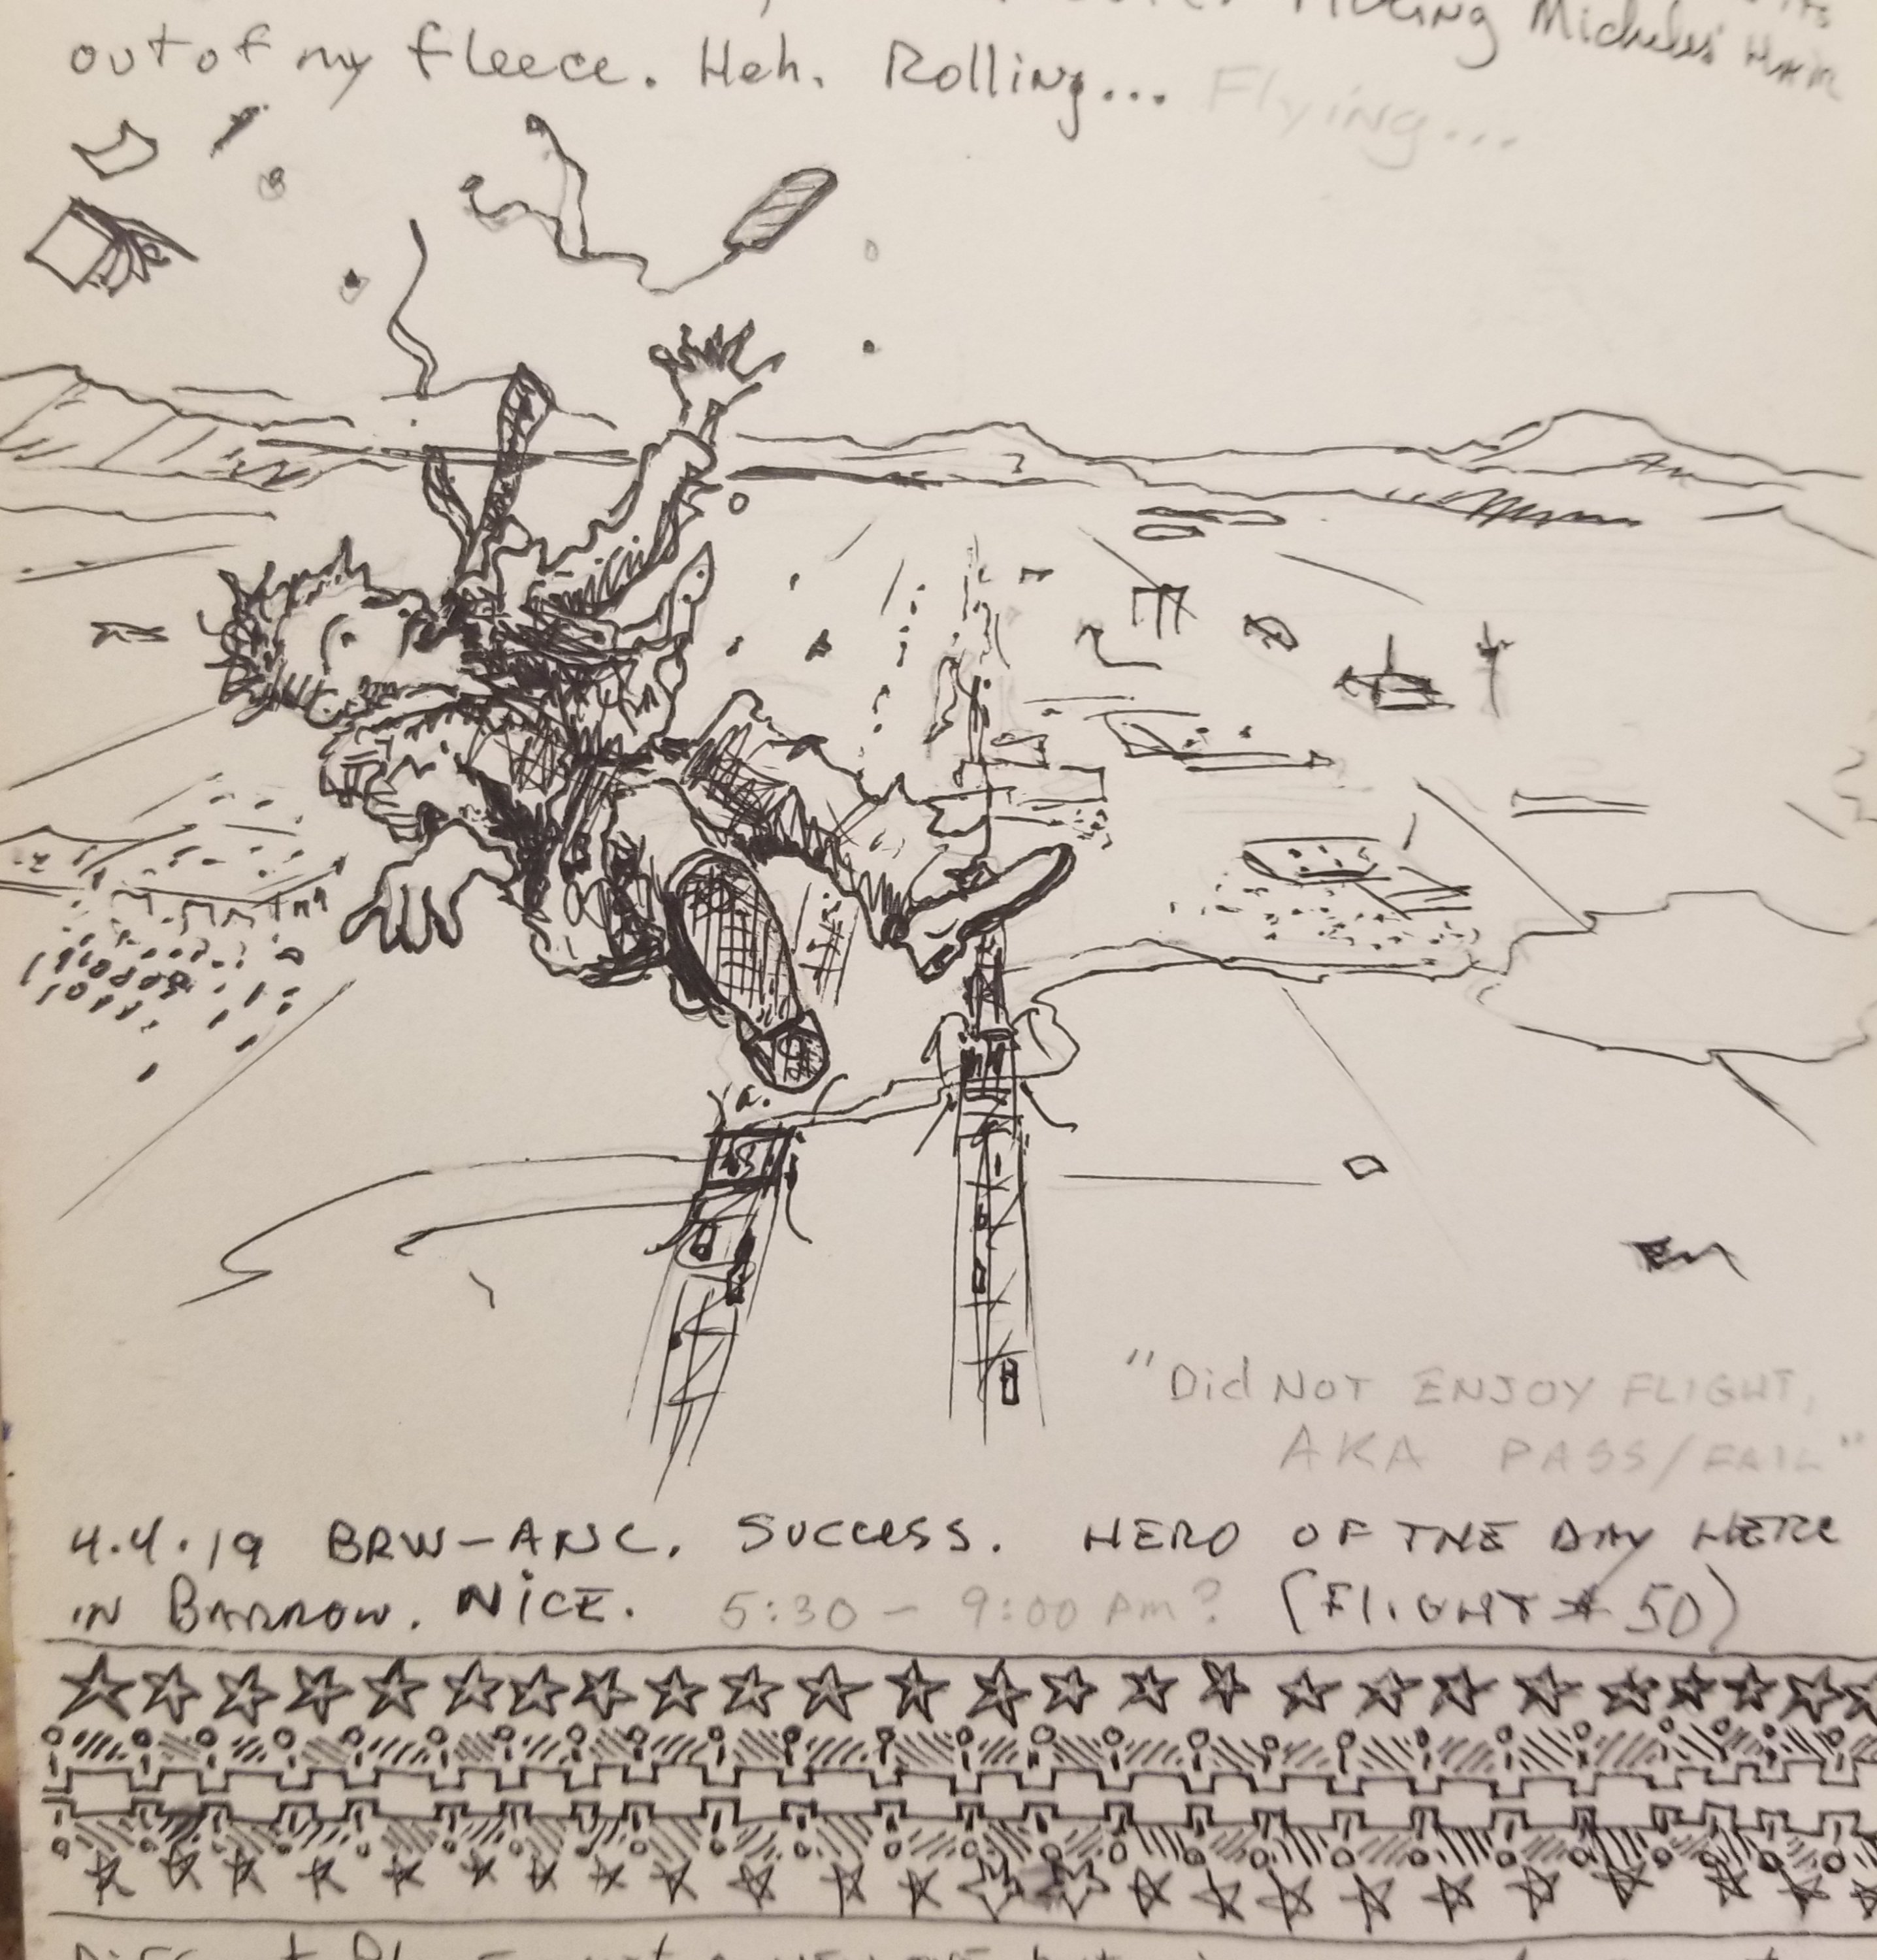 Picking Michele's Hair
out of my fleece. Heh. Rolling... Flying...
"Did NOT ENJOY FLIGHT,
AKA PASS/FAIL"
4.4.19 BRW-ANC. SUCCESS. HERO OF THE DAY HERE
IN BARROW. NICE. 5:30 - 9:00 Pm? (FLIGHT # 50)